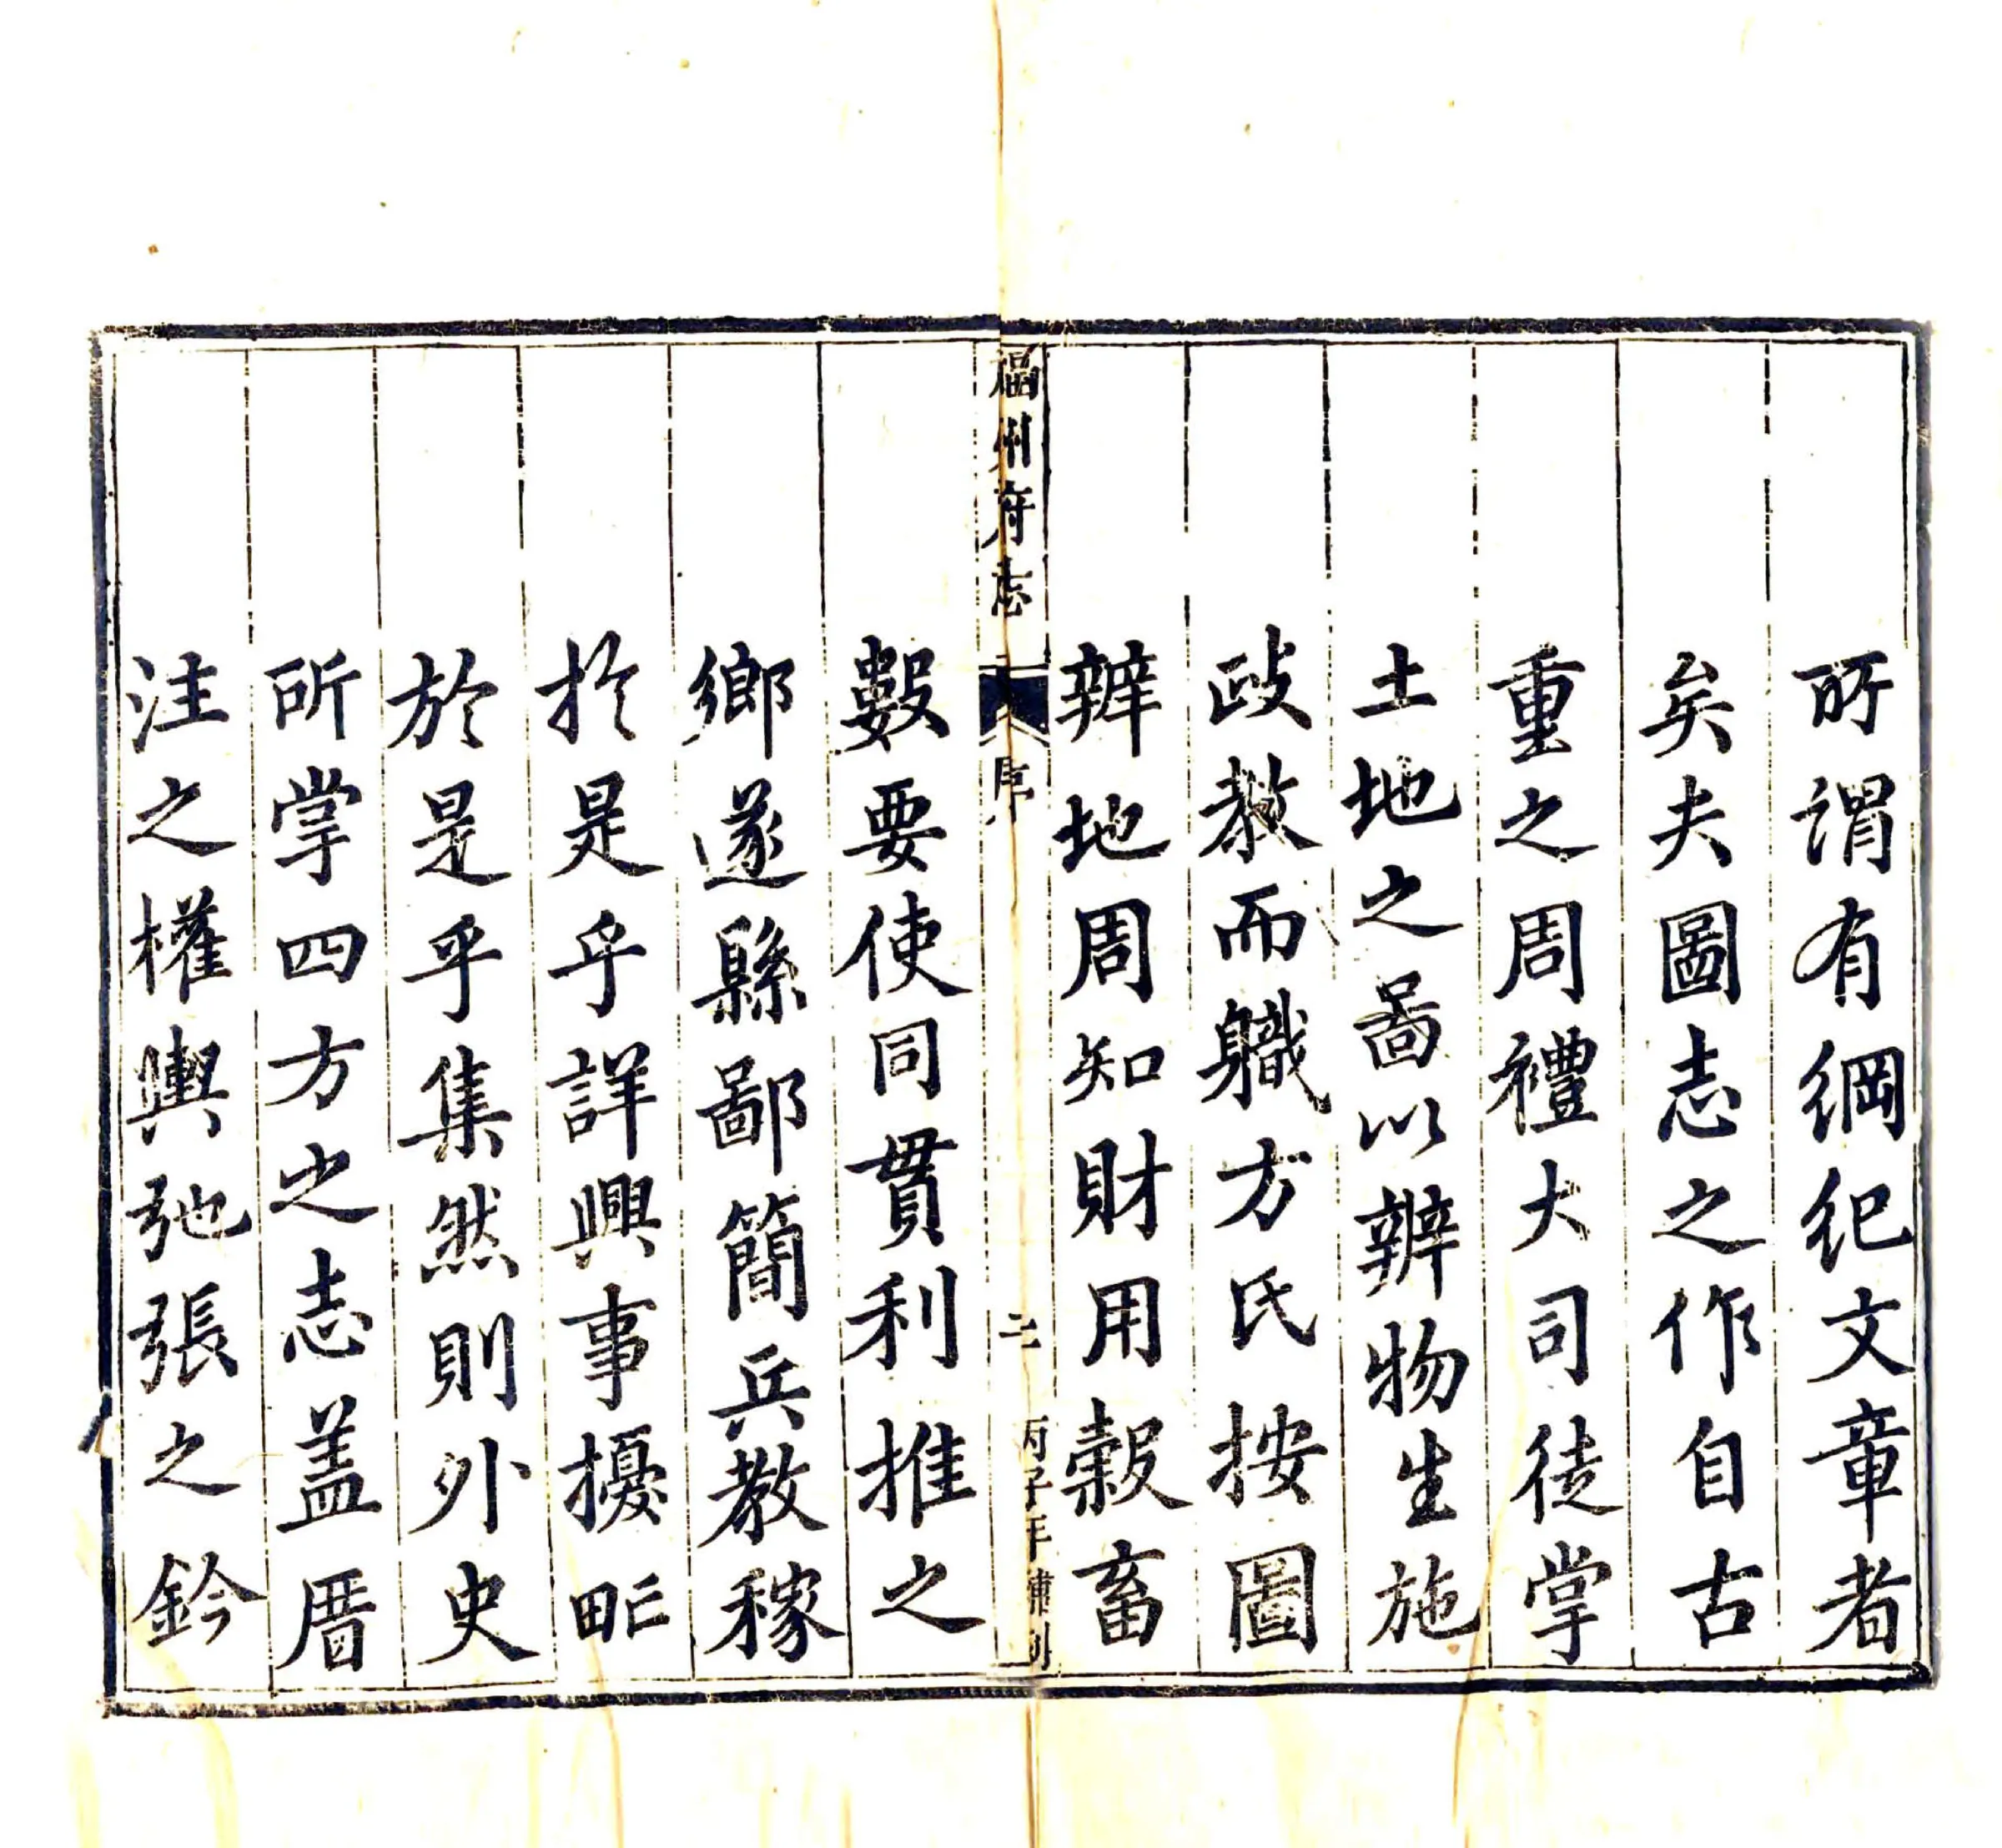 所謂有綱紀文章者
矣夫圖志之作自古
重之周禮大司徒掌
土地之啚以辧物生施
政教而職方氏按圖
辧地周知財用穀畜
福州府志
序
二
丙子年 刊
數要使同貫利推之
鄉遂縣鄙簡兵教稼
於是乎詳興事擾甿
於是乎集然則外史
所掌四方之志盖厝
注之權輿弛張之鈐